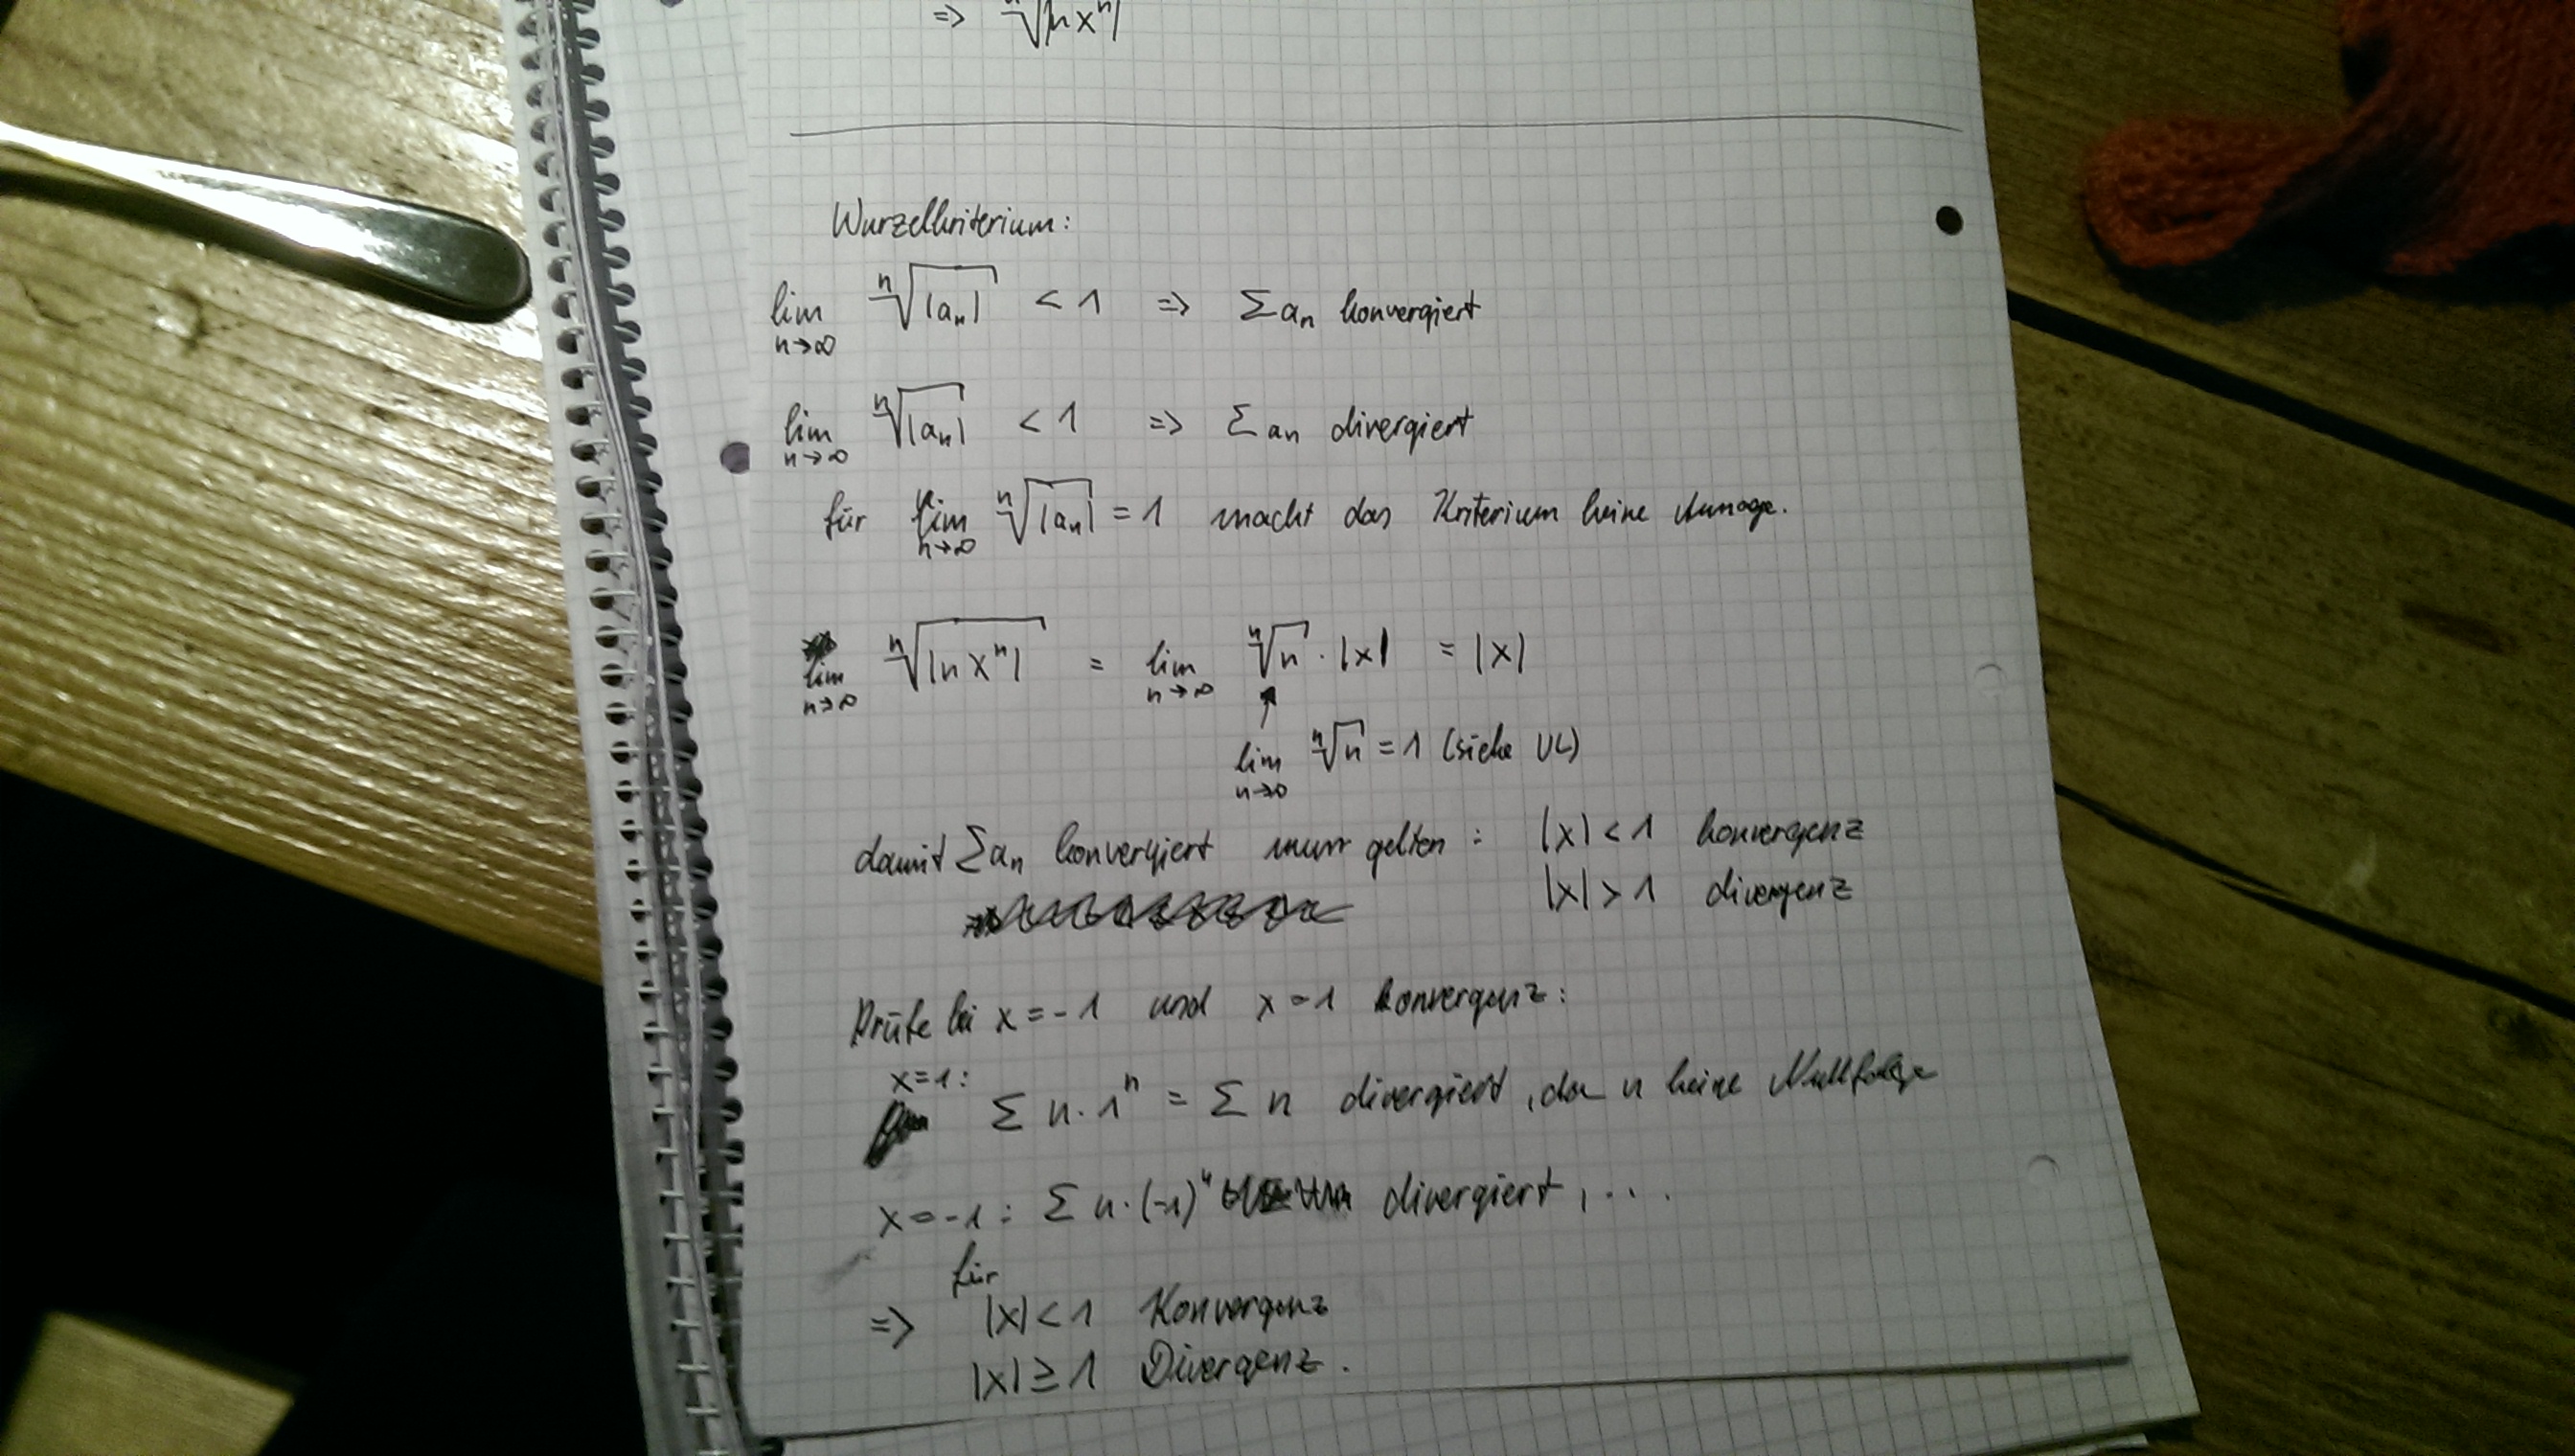 => ⁿ√|n xⁿ|
Wurzelkriterium:
lim n→∞ ⁿ√|aₙ| < 1 => Σaₙ konvergiert
lim n→∞ ⁿ√|aₙ| < 1 => Σaₙ divergiert
für lim n→∞ ⁿ√|aₙ| = 1 macht das Kriterium keine Aussage.
lim n→∞ ⁿ√|n xⁿ| = lim n→∞ ⁿ√n · |x| = |x|
lim n→∞ ⁿ√n = 1 (siehe VL)
damit Σaₙ konvergiert muss gelten : |x| < 1 konvergenz
|x| > 1 divergenz
Prüfe bei x = -1 und x = 1 konvergenz:
x=1:
Σ n · 1ⁿ = Σ n divergiert, da n keine Nullfolge
x = -1 : Σ n · (-1)ⁿ divergiert, ...
für
=> |x| < 1 Konvergenz
|x| ≥ 1 Divergenz.